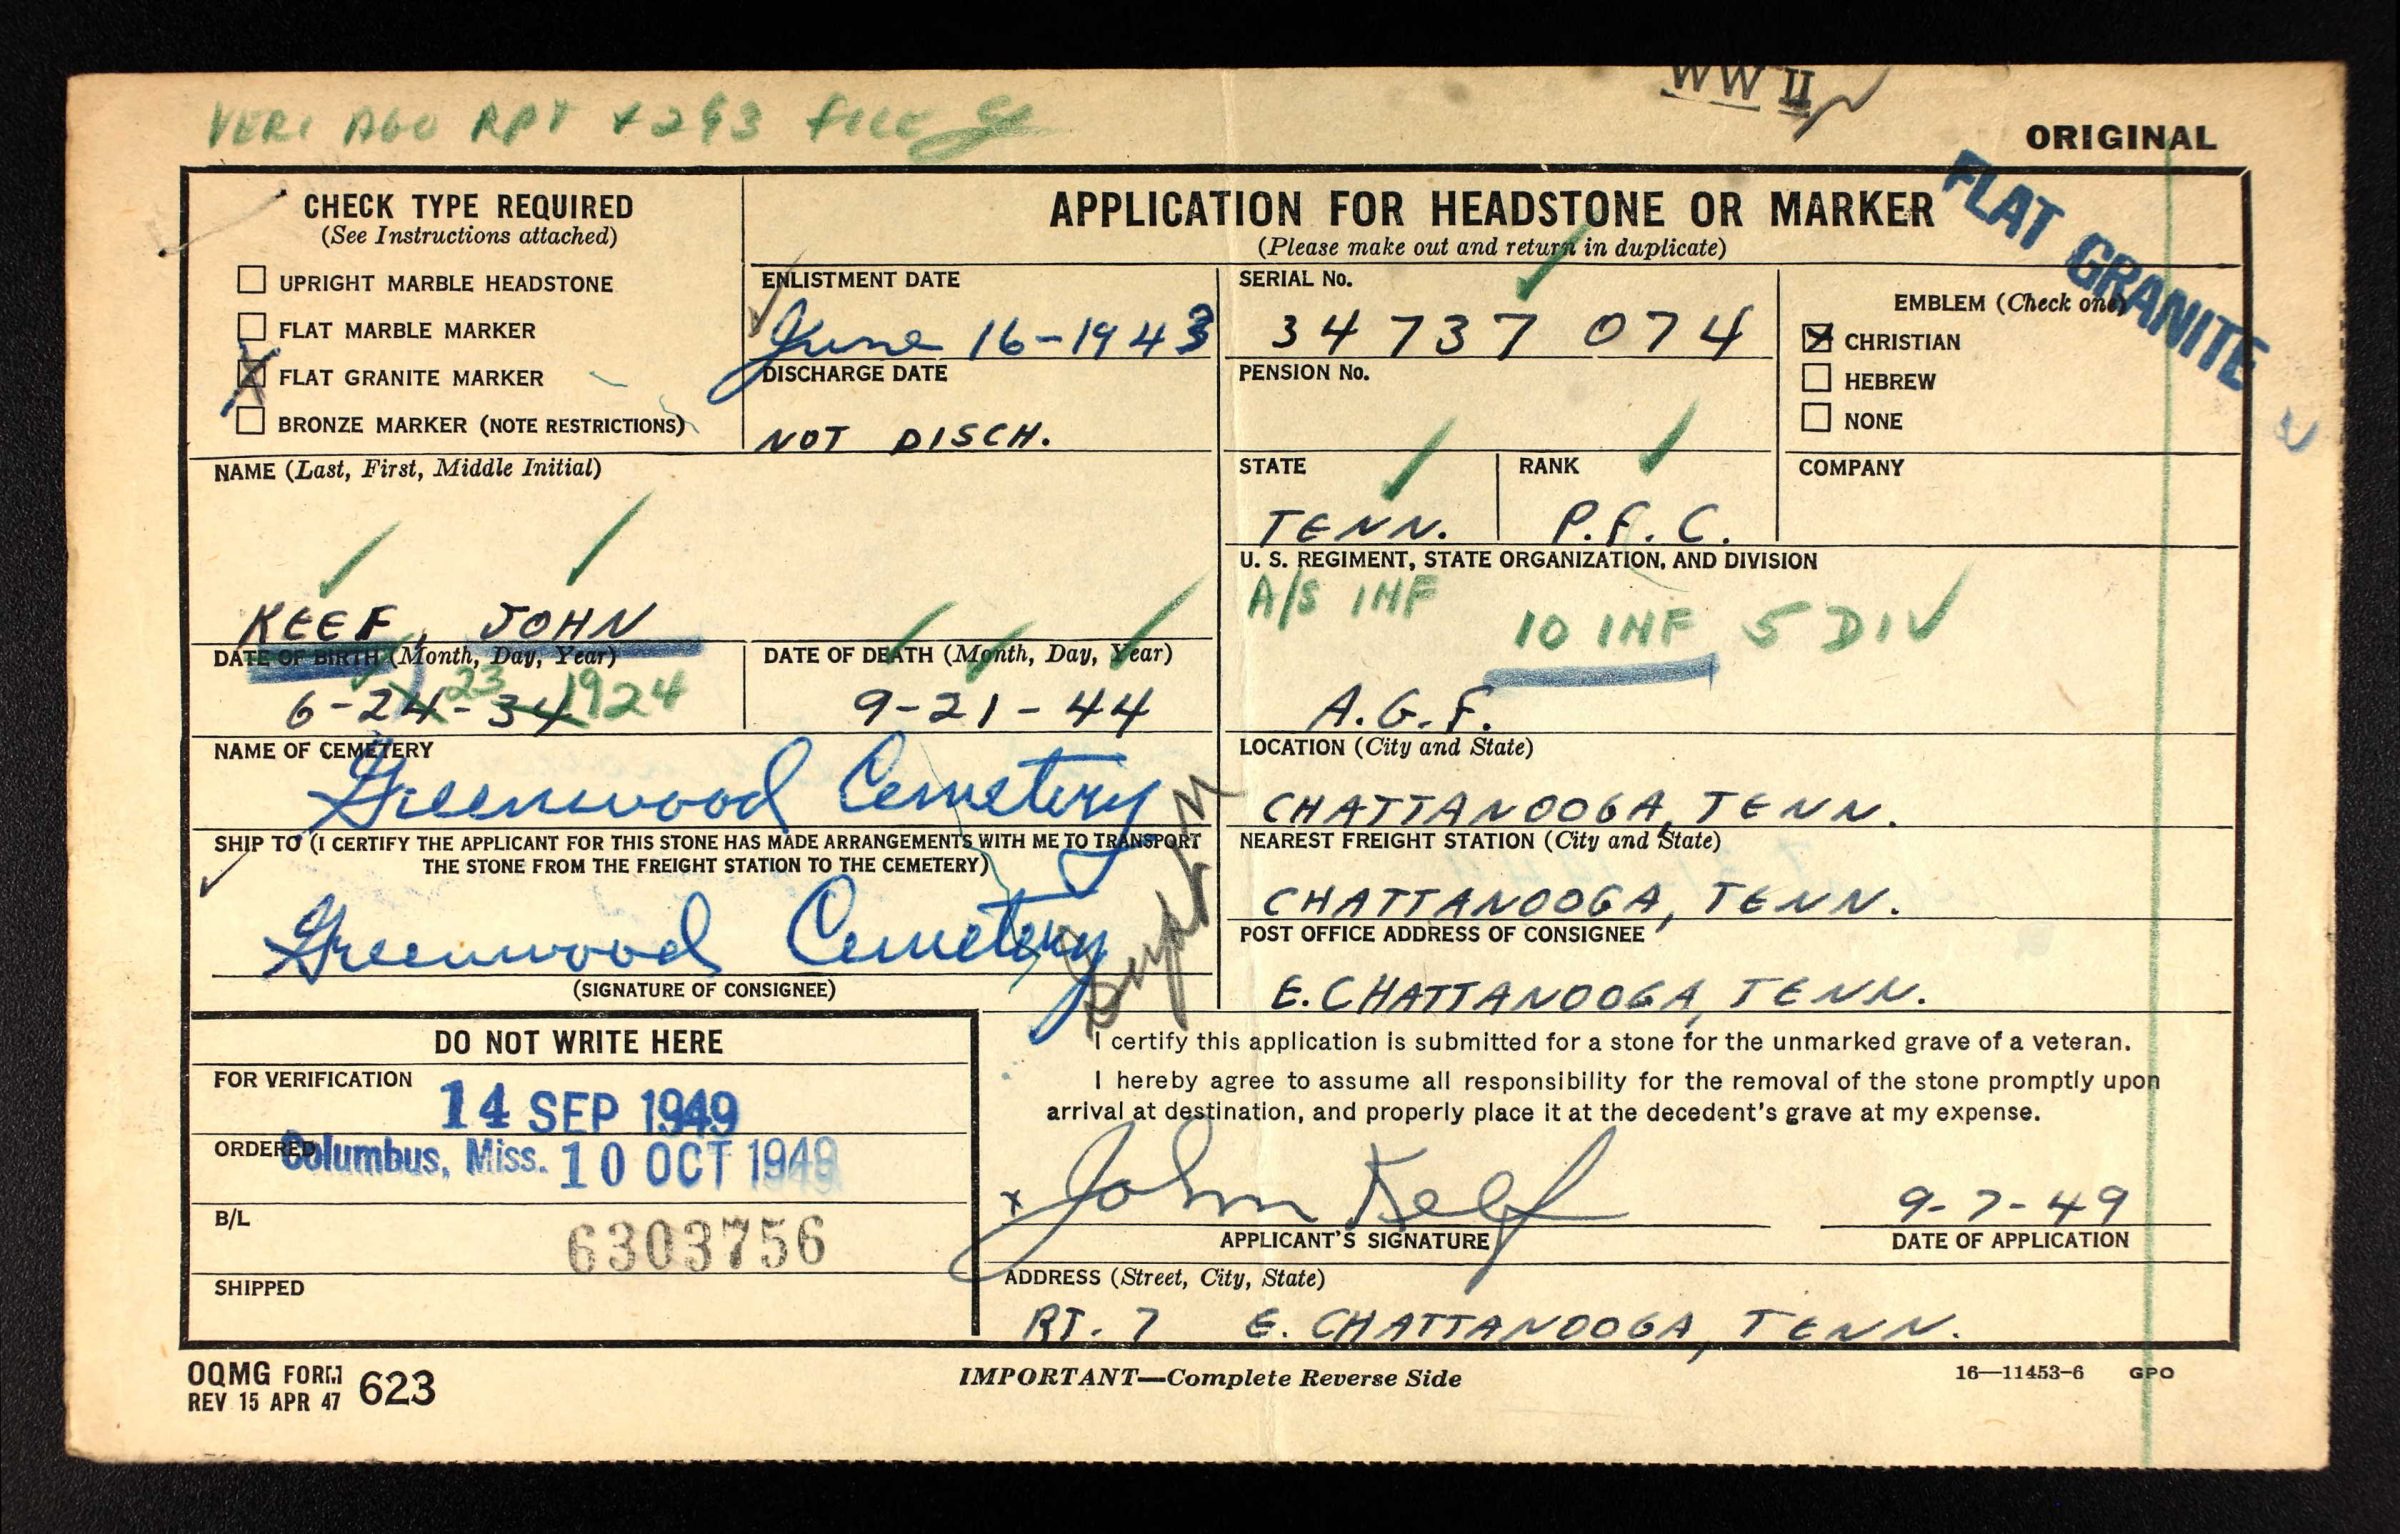 WW II
VERI AGO RPT + 293 FILE
ORIGINAL
FLAT GRANITE
CHECK TYPE REQUIRED
(See Instructions attached)
UPRIGHT MARBLE HEADSTONE
FLAT MARBLE MARKER
X FLAT GRANITE MARKER
BRONZE MARKER (NOTE RESTRICTIONS)
APPLICATION FOR HEADSTONE OR MARKER
(Please make out and return in duplicate)
ENLISTMENT DATE
June 16-1943
DISCHARGE DATE
NOT DISCH.
SERIAL No.
34 737 074
PENSION No.
EMBLEM (Check one)
X CHRISTIAN
HEBREW
NONE
NAME (Last, First, Middle Initial)
KEEF, JOHN
STATE
TENN.
RANK
P.F.C.
COMPANY
U. S. REGIMENT, STATE ORGANIZATION, AND DIVISION
A/S INF
10 INF 5 DIV
A.G.F.
DATE OF BIRTH (Month, Day, Year)
6-24-34 23 1924
DATE OF DEATH (Month, Day, Year)
9-21-44
NAME OF CEMETERY
Greenwood Cemetery
LOCATION (City and State)
CHATTANOOGA, TENN.
SHIP TO (I CERTIFY THE APPLICANT FOR THIS STONE HAS MADE ARRANGEMENTS WITH ME TO TRANSPORT
THE STONE FROM THE FREIGHT STATION TO THE CEMETERY)
Greenwood Cemetery
(SIGNATURE OF CONSIGNEE)
NEAREST FREIGHT STATION (City and State)
CHATTANOOGA, TENN.
POST OFFICE ADDRESS OF CONSIGNEE
E. CHATTANOOGA, TENN.
DO NOT WRITE HERE
FOR VERIFICATION
14 SEP 1949
ORDERED
Columbus, Miss. 10 OCT 1949
B/L
6303756
SHIPPED
I certify this application is submitted for a stone for the unmarked grave of a veteran.
I hereby agree to assume all responsibility for the removal of the stone promptly upon
arrival at destination, and properly place it at the decedent's grave at my expense.
x John Keef
9-7-49
APPLICANT'S SIGNATURE
DATE OF APPLICATION
ADDRESS (Street, City, State)
RT. 7 E. CHATTANOOGA, TENN.
OQMG FORM
REV 15 APR 47 623
IMPORTANT—Complete Reverse Side
16—11453-6 GPO